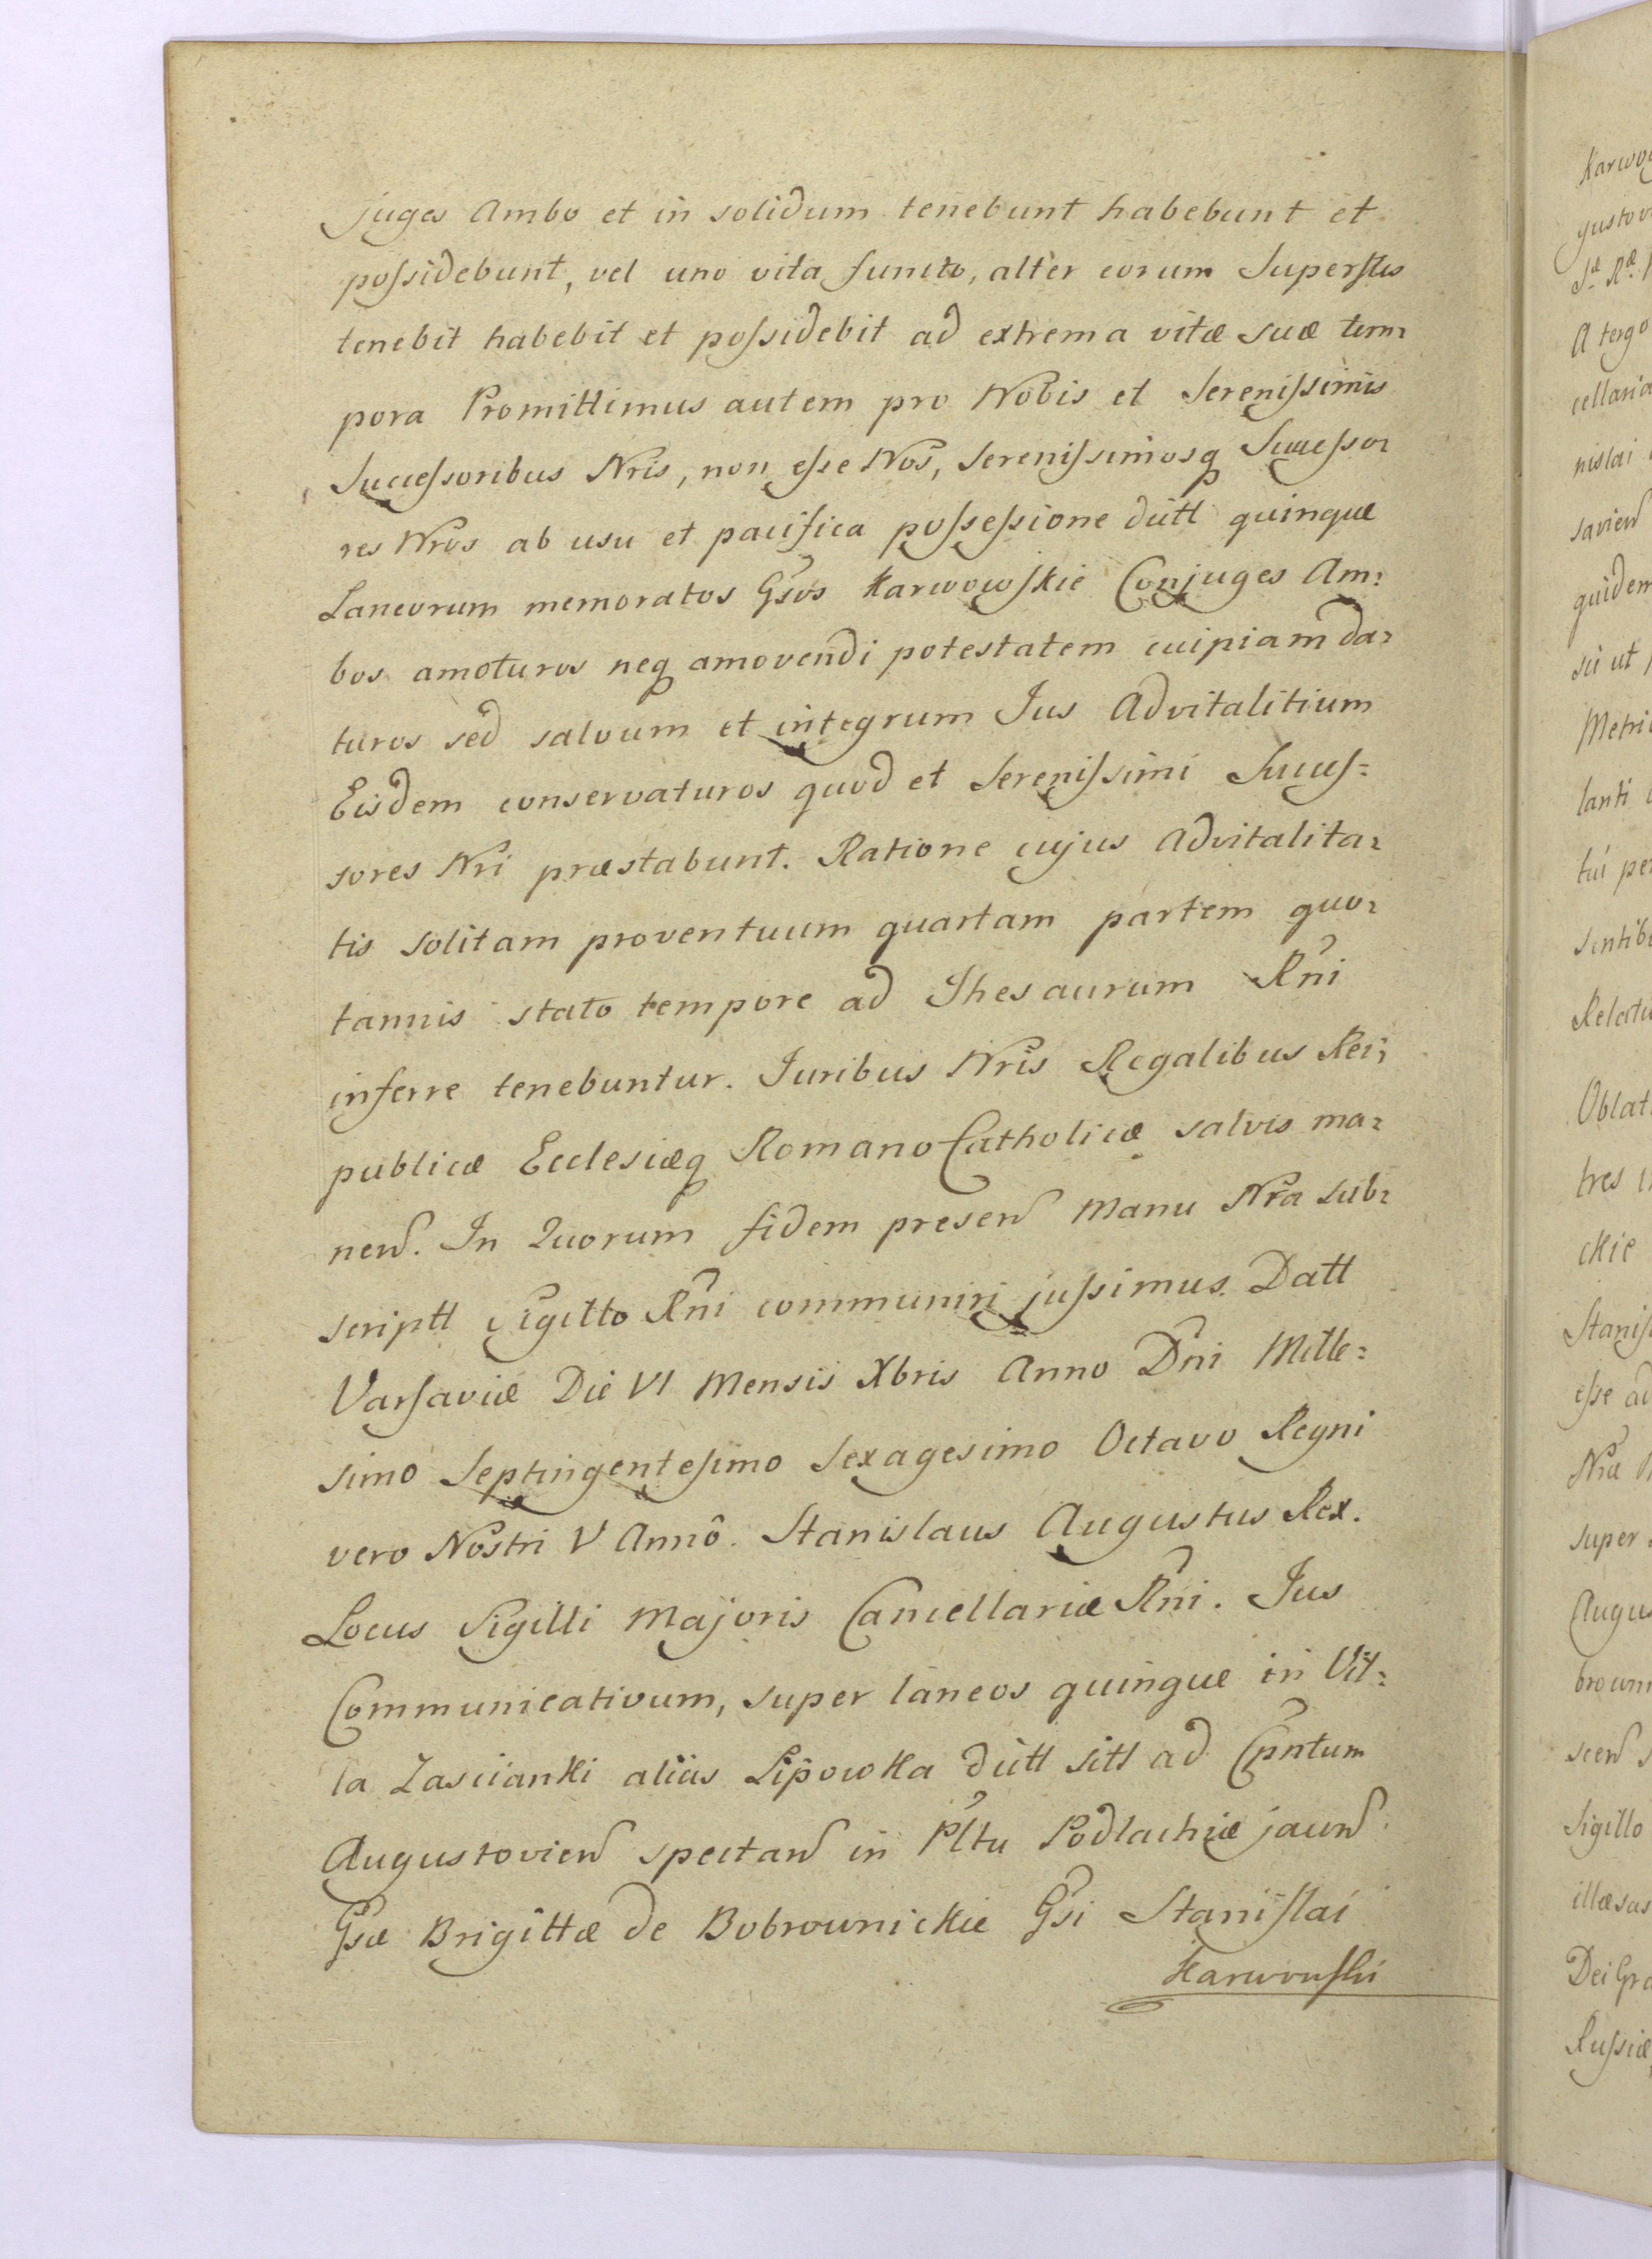 juges Ambo et in solidum tenebunt habebunt et
poſsidebunt, vel uno vita functo, alter eorum Superstes
tenebit habebit et poſsidebit ad extrema vitæ suæ tem=
pora Promittimus autem pro Nobis et Sereniſsimis
Succeſsoribus Nris, non eſse Nos, Sereniſsimosq Succeſso=
res Nros ab usu et pacifica poſseſsione dictt quinque
Laneorum memoratos Gsos Karwowſkie Conjuges Am=
bos amoturos neq amovendi potestatem cuipiam da=
turos sed salvum et integrum Jus Advitalitium
Eisdem conservaturos quod et Sereniſsimi Succeſ=
sores Nri præstabunt. Ratione cujus Advitalita=
tis solitam proventuum quartam partem quo=
tannis stato tempore ad Thesaurum Rni
inferre tenebuntur. Juribus Nris Regalibus Rei=
publicæ Ecclesiæq Romano Catholicæ salvis ma=
nen. In Quorum fidem presen Manu Nra sub=
scriptt sigillo Rni communiri juſsimus. Datt
Varſaviæ Die VI Mensis Xbris Anno Dni Mille=
simo Septingenteſimo Sexagesimo Octavo Regni
vero Nostri V Annô. Stanislaus Augustus Rex.
Locus Sigilli Majoris Cancellariæ Rni. Jus
Communicativum, super laneos quinque in Vil=
la Zascianki alias Lipowka dictt sitt ad Cpntum
Augustovien spectan in Pltu Podlachiæ jacen
Gsæ Brigittæ de Bobrownickie Gsi Staniſlai
Karwowſki
A tergo
cellaria
nislai
savien
quidem
su ut
lanti
super
Sigillo
illæsas